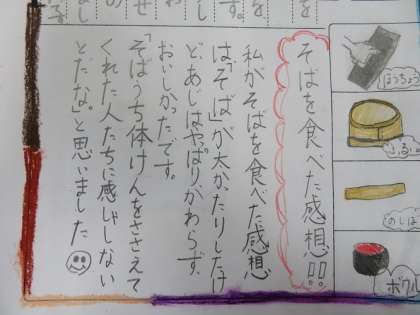 そばを食べた感想!!
私がそばを食べた感想
は「そば」が太かたりしたけ
ど、あじはやっぱりかわらず、
おいしかったです。
「そばうち体けんをささえて
くれた人たちに感しゃしない
とだな。」と思いました
ほうちょう
ふるい
のしぼ
ボウル